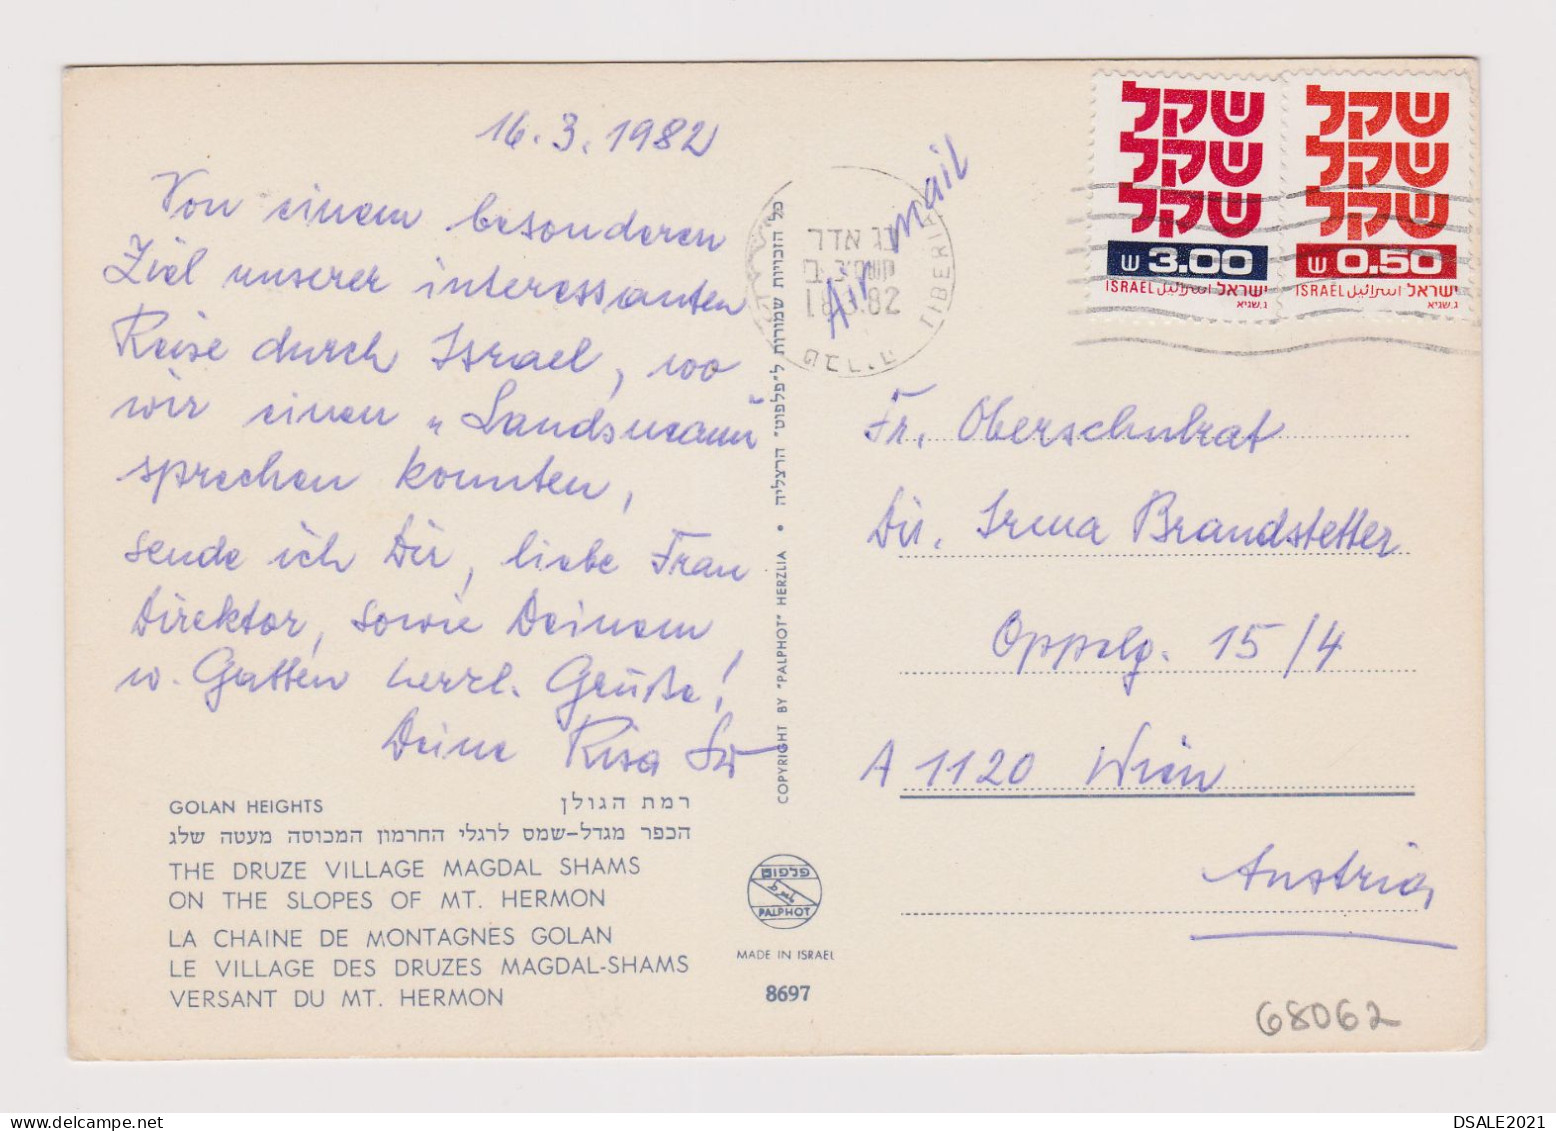 16.3.1982
Von einem besonderen
Ziel unserer interessanten
Reise durch Israel, wo
wir einen „Landsmann"
sprechen konnten,
sende ich Dir, liebe Frau
Direktor, sowie Deinem
w. Gatten herzl. Grüße!
Deine Risa
GOLAN HEIGHTS רמת הגולן
הכפר מגדל-שמס לרגלי החרמון המכוסה מעטה שלג
THE DRUZE VILLAGE MAGDAL SHAMS
ON THE SLOPES OF MT. HERMON
LA CHAINE DE MONTAGNES GOLAN
LE VILLAGE DES DRUZES MAGDAL-SHAMS
VERSANT DU MT. HERMON
COPYRIGHT BY "PALPHOT" HERZLIA • כל הזכויות שמורות ל"פלפוט" הרצליה
פלפוט
PALPHOT
MADE IN ISRAEL
8697
Air mail
TIBERIAS
כג אדר
18.3.82
טבריה
שקל
שקל
שקל
ש 3.00
ISRAEL اسرائيل ישראל
ג.שגיא
שקל
שקל
שקל
ש 0.50
ISRAEL اسرائيل ישראל
ג.שגיא
Fr. Oberschulrat
Dir. Irma Brandstetter
Oppelg. 15/4
A 1120 Wien
Austria
68062
DSALE2021